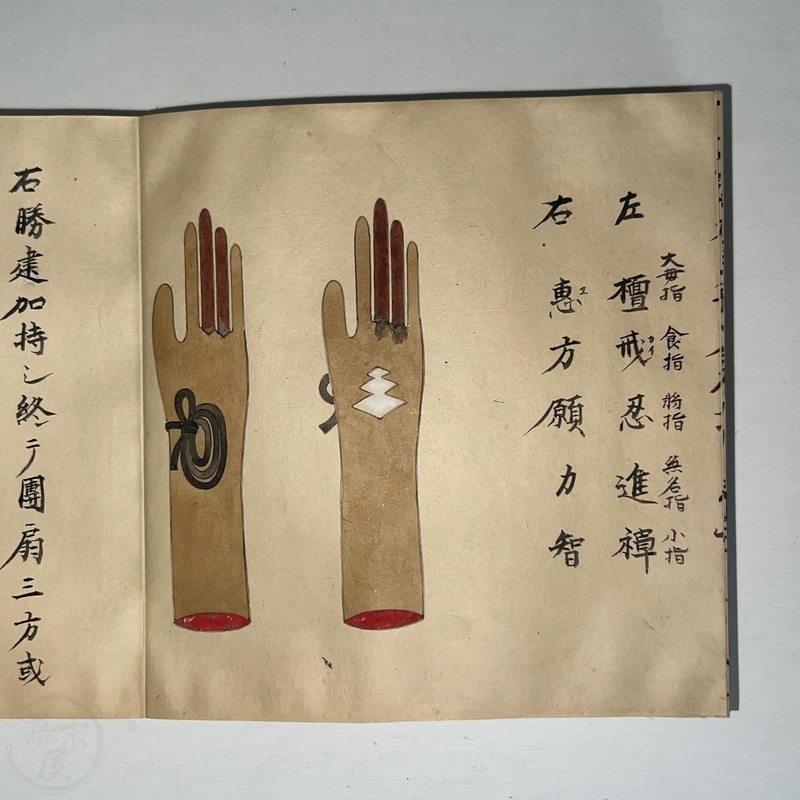 大母指 食指 將指 無名指 小指
左 檀 戒カイ 忍 進 禪
右 惠ヱ 方 願 力 智
右勝建加持シ終テ團扇三方或